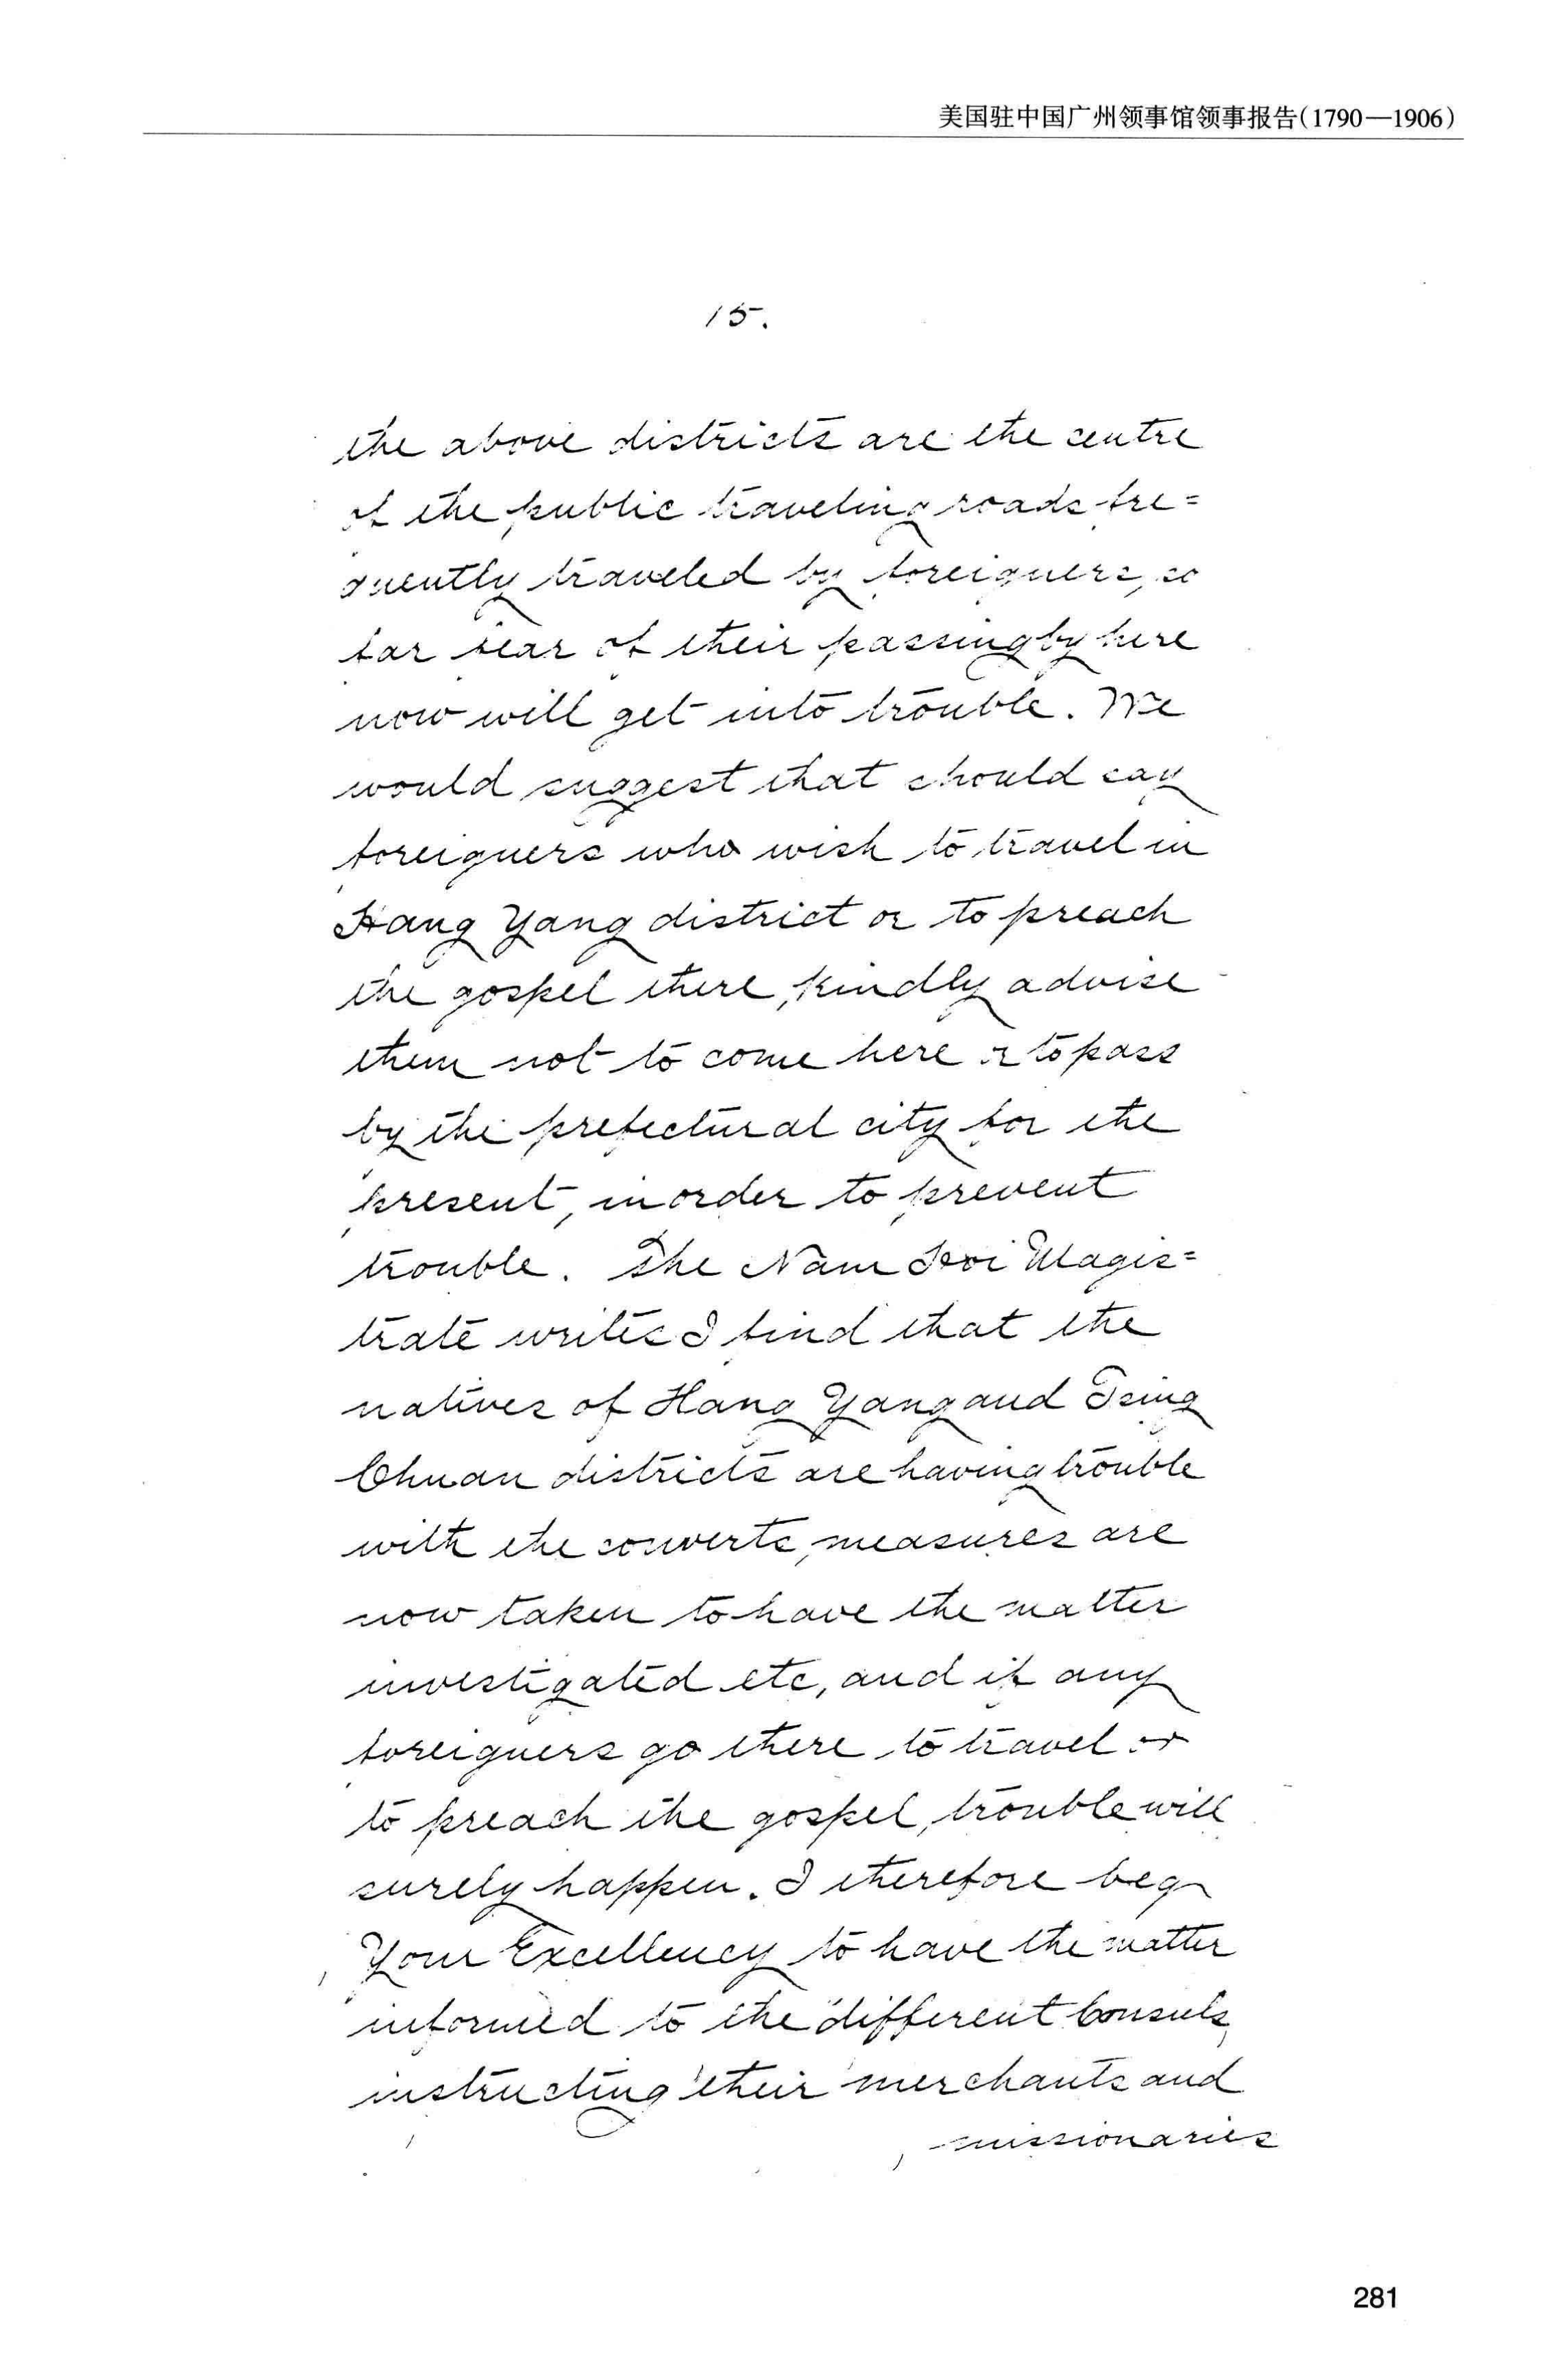 美国驻中国广州领事馆领事报告(1790—1906)
15.
the above districts are the centre
of the public traveling roads fre=
quently traveled by foreigners, so
far fear of their passing by here
now will get into trouble. We
would suggest that should say
foreigners who wish to travel in
Hang Yang district or to preach
the gospel there, kindly advise
them not to come here or to pass
by the prefectural city for the
present, in order to prevent
trouble. The Nam Hoi Magis=
trate writes I find that the
natives of Hang Yang and Tsing
Chuan districts are having trouble
with the converts, measures are
now taken to have the matter
investigated etc, and if any
foreigners go there to travel or
to preach the gospel, trouble will
surely happen. I therefore beg
Your Excellency to have the matter
informed to the different Consuls,
instructing their merchants and
missionaries
281